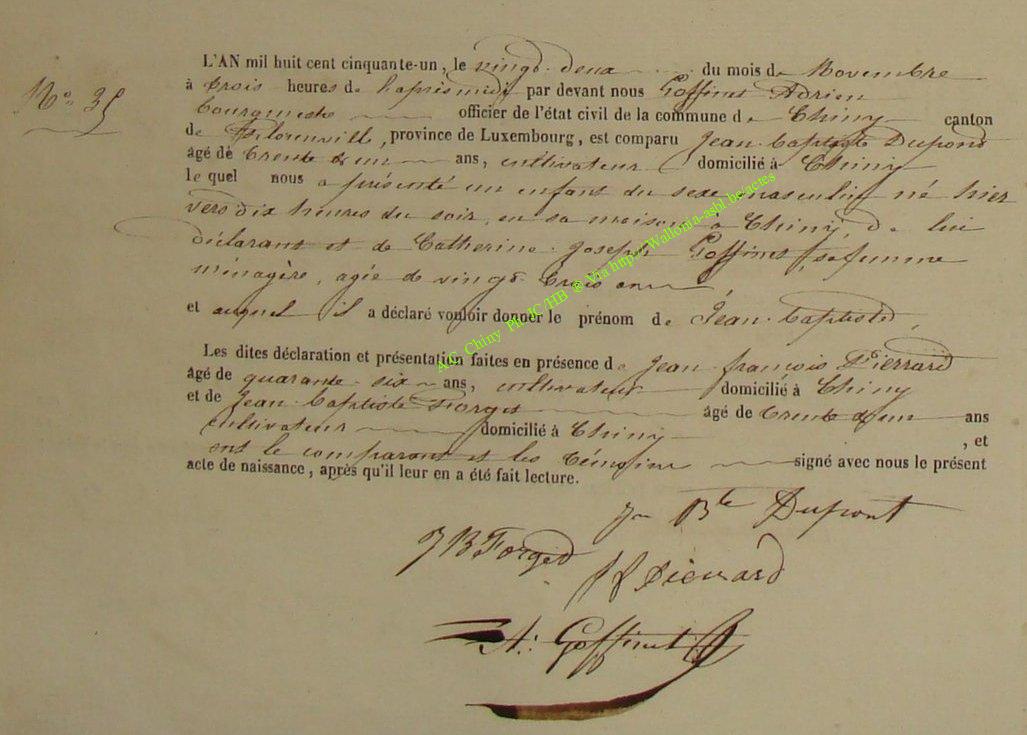 L'AN mil huit cent cinquante-un, le vingt deux du mois de Novembre
No. 35
à trois heures de l'après midi par devant nous Goffinet Adrien
bourgmestre officier de l'état civil de la commune de Chiny canton
de Florenville, province de Luxembourg, est comparu Jean Baptiste Dupond
âgé de trente & un ans, cultivateur domicilié à Chiny
le quel nous a présenté un enfant du sexe masculin né hier
vers dix heures du soir, en sa maison à Chiny, de lui
déclarant et de Catherine Joseph Goffinet, sa femme
ménagère, agée de vingt trois ans,
et auquel il a déclaré vouloir donner le prénom de Jean-baptiste,
Les dites déclaration et présentation faites en présence de Jean françois Pierrard
âgé de quarante six ans, cultivateur domicilié à Chiny
et de Jean baptiste Forget âgé de trente & un ans
cultivateur domicilié à Chiny , et
ont le comparant et les témoins signé avec nous le présent
acte de naissance, après qu'il leur en a été fait lecture.
Jn Bte Dupont
J B Forget
J f Pierrard
A: Goffinet
A/C Chiny Ph JC/HB @ Via http:// Wallonia-asbl be/actes